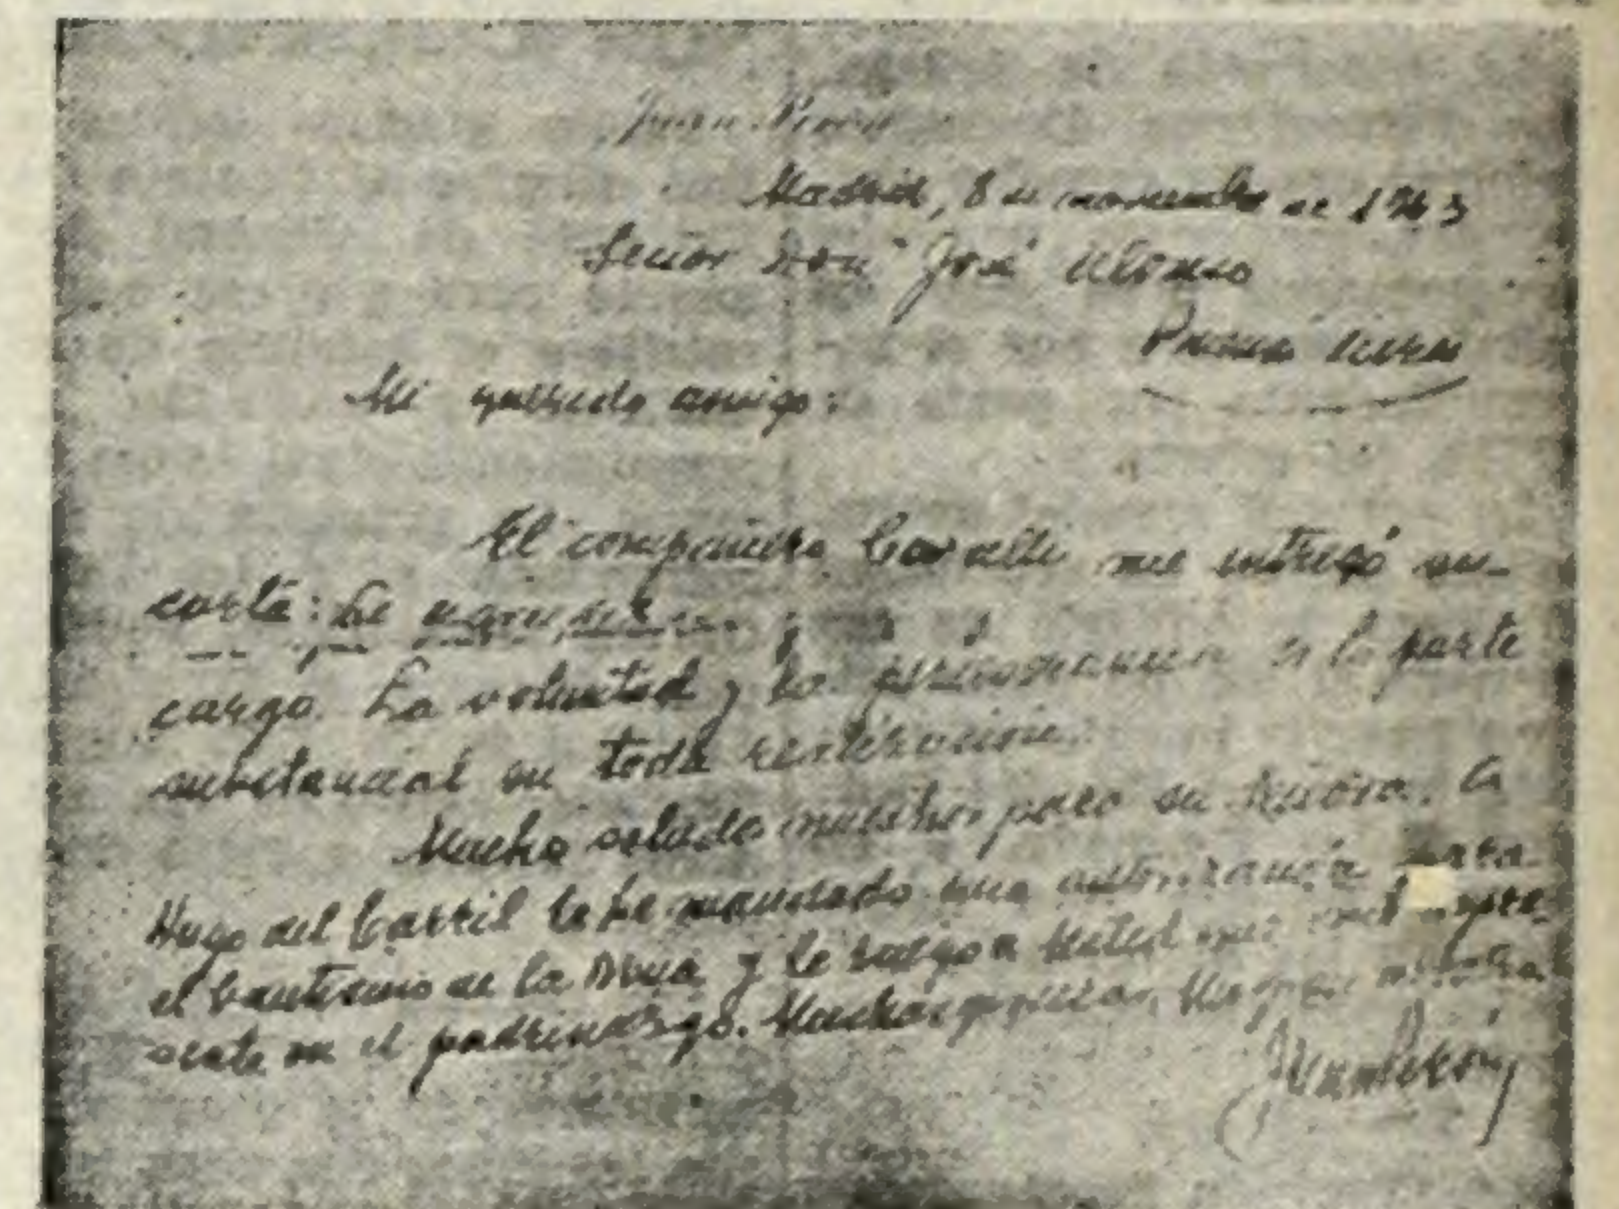 Juan Perón
Madrid, 8 de noviembre de 1963
Señor Don José Alonso
Buenos Aires
Mi querido amigo:
El compañero Cavalli me entregó su
carta: Le
cargo. La voluntad y la perseverancia es la parte
substancial en toda realización.
Mucho saludos nuestros para su Señora. A
Hugo del Carril le he mandado una autorización para
el bautismo de la Nena y le ruego a Usted que me repre-
sente en el padrinazgo. Muchas gracias. Un gran
Juan Perón